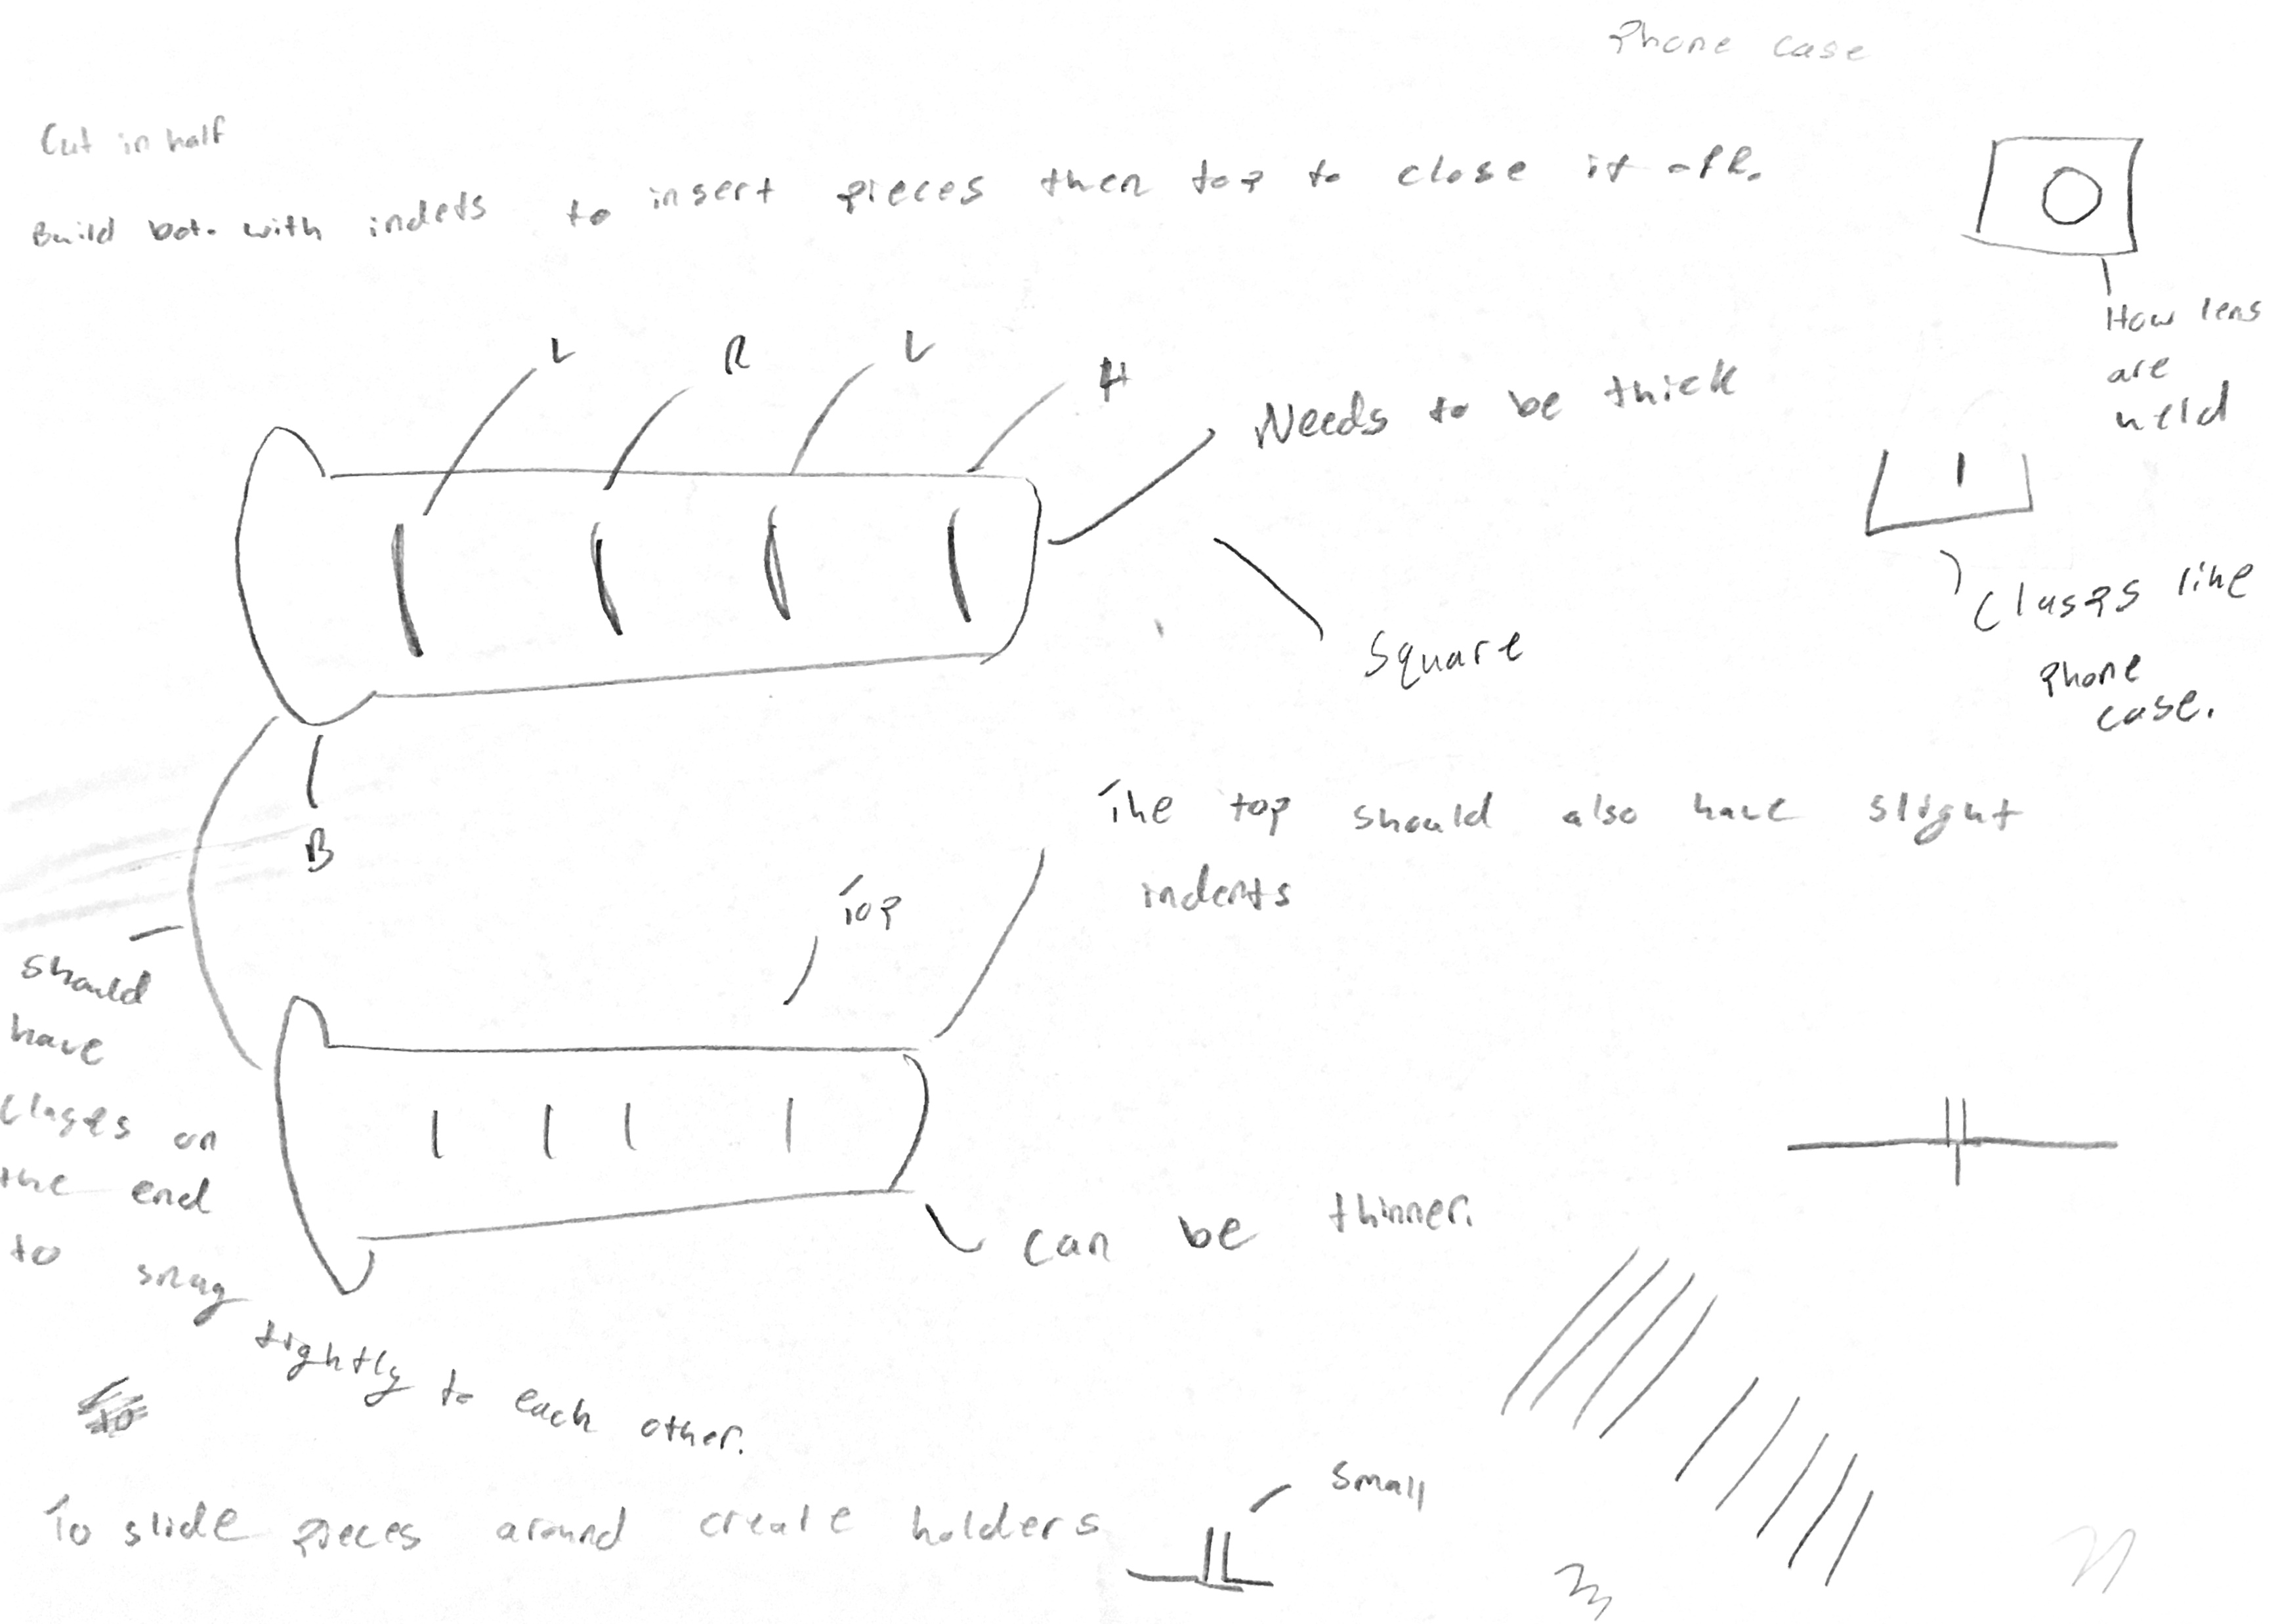 Phone case
Cut in half
Build bot. with indets to insert pieces then top to close it off.
How lens
are
held
L
R
L
H
Needs to be thick
Square
Clasps like
Phone
case.
B
The top should also have slight
indents
Top
should
have
clasps on
the end
to snag
tightly to each other.
can be thinner.
To slide pieces around create holders
small